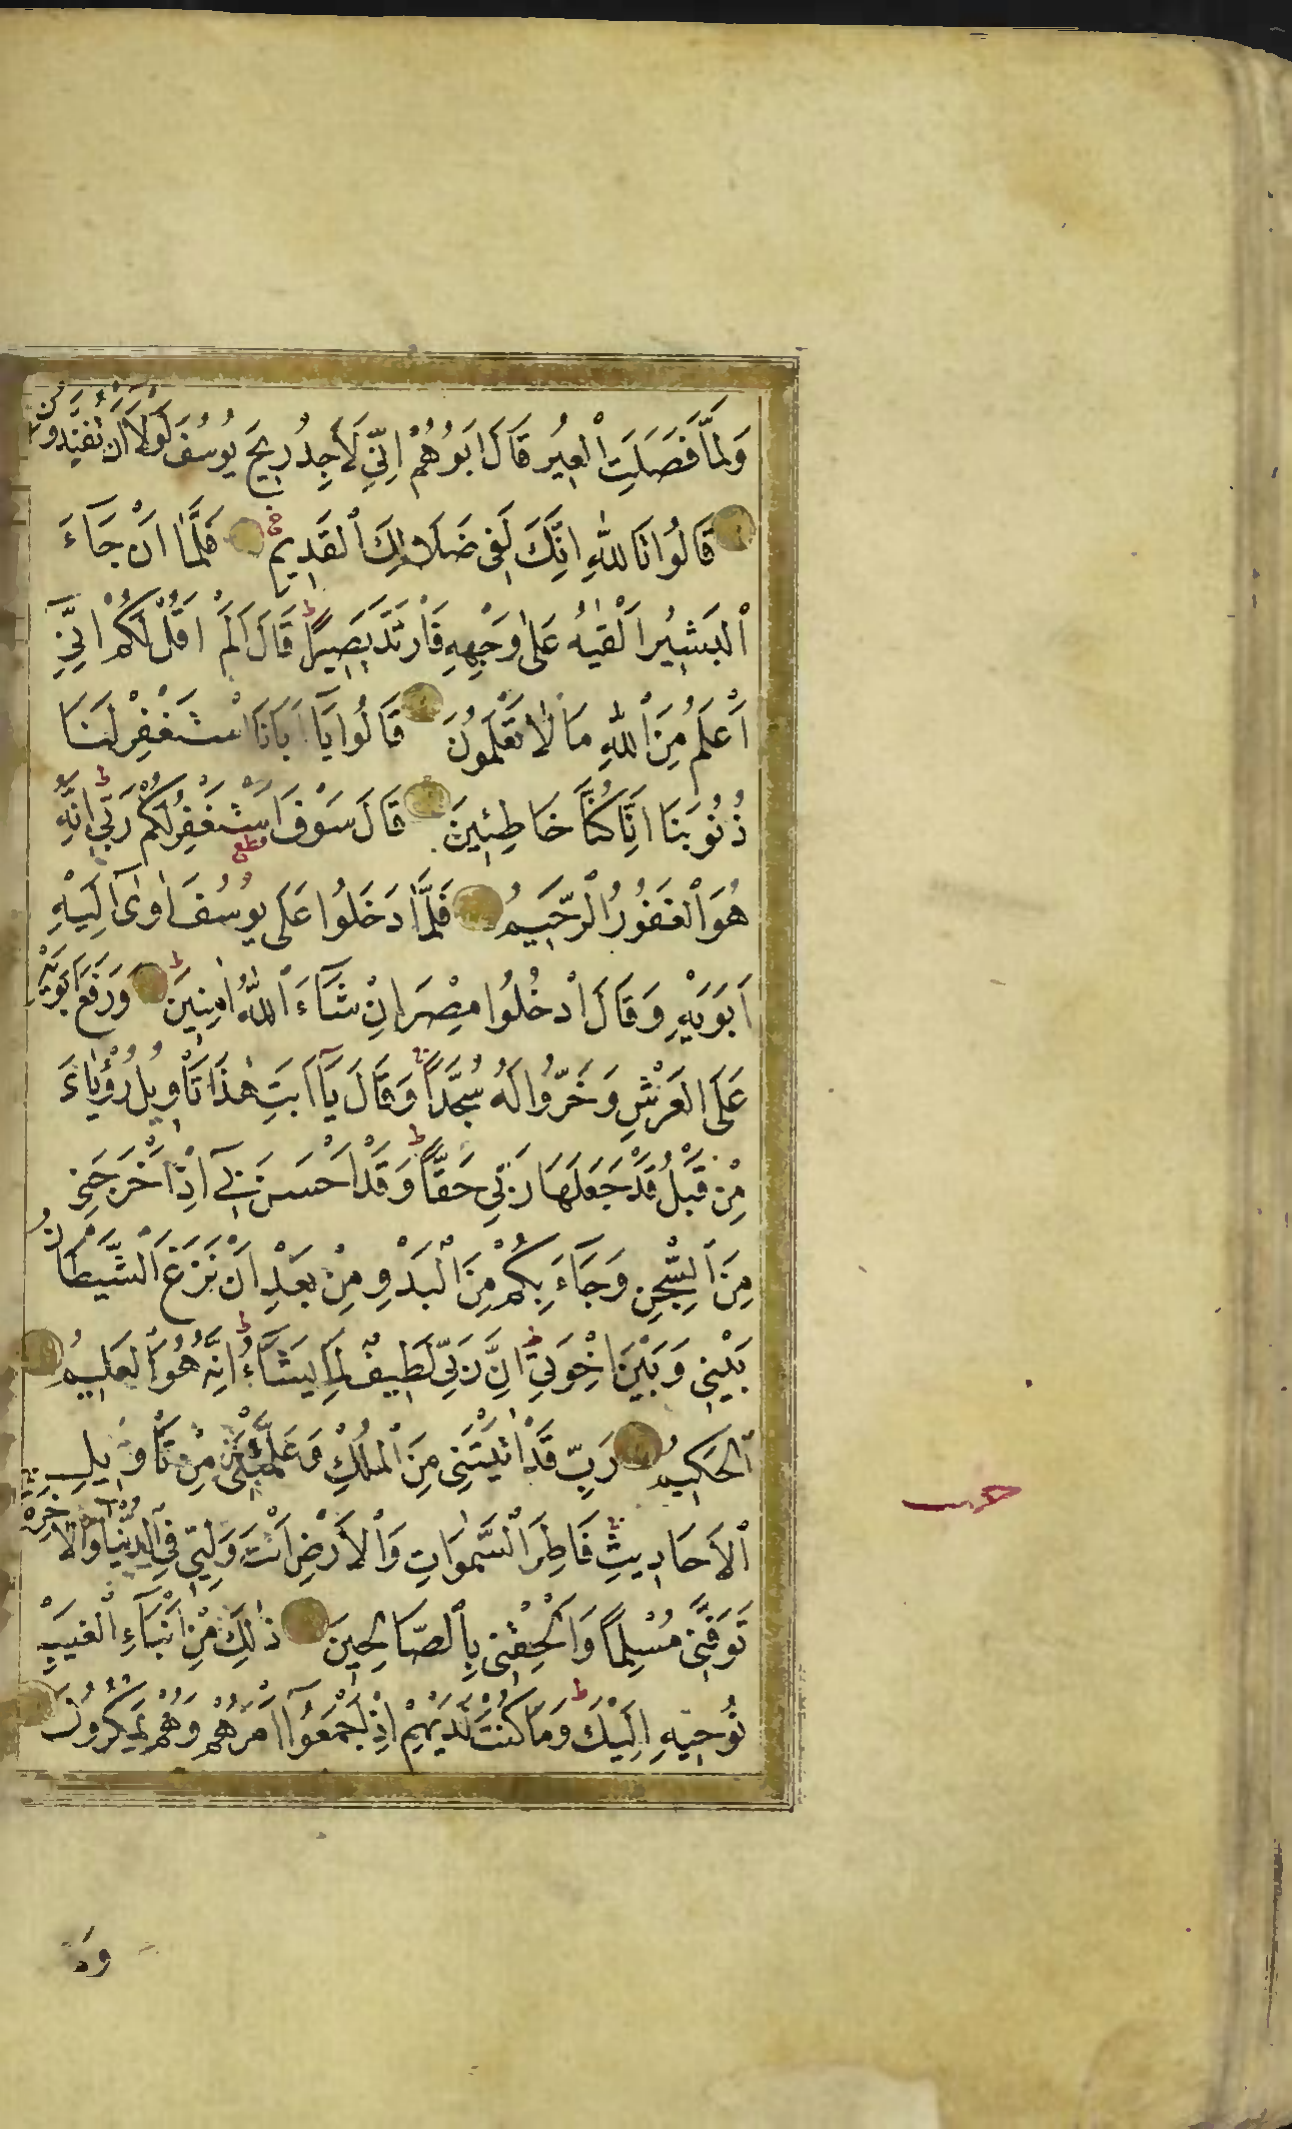 وَلَمَّا فَصَلَتِ ٱلْعِيرُ قَالَ اَبُوهُمْ اِنّ۪ي لَاَجِدُ ر۪يحَ يُوسُفَ لَوْلَٓا اَنْ تُفَنِّدُونِ
قَالُوا تَاللّٰهِ اِنَّكَ لَف۪ي ضَلَالِكَ ٱلْقَد۪يمِ فَلَمَّٓا اَنْ جَٓاءَ
ٱلْبَش۪يرُ اَلْقٰيهُ عَلٰى وَجْهِه۪ فَارْتَدَّ بَص۪يرًا ط قَالَ اَلَمْ اَقُلْ لَكُمْ اِنّ۪ٓي
اَعْلَمُ مِنَ ٱللّٰهِ مَا لَا تَعْلَمُونَ قَالُوا يَٓا اَبَانَا اسْتَغْفِرْ لَنَا
ذُنُوبَنَٓا اِنَّا كُنَّا خَاطِـ۪ٔينَ قَالَ سَوْفَ اَسْتَغْفِرُ لَكُمْ رَبّ۪ي ط اِنَّهُ
هُوَ ٱلْغَفُورُ ٱلرَّح۪يمُ فَلَمَّا دَخَلُوا عَلٰى يُوسُفَ اٰوٰٓى اِلَيْهِ
اَبَوَيْهِ وَقَالَ ادْخُلُوا مِصْرَ اِنْ شَٓاءَ ٱللّٰهُ اٰمِن۪ينَ ط وَرَفَعَ اَبَوَيْهِ
عَلَى الْعَرْشِ وَخَرُّوا لَهُ سُجَّدًا وَقَالَ يَٓا اَبَتِ هٰذَا تَأْو۪يلُ رُؤْيَايَ
مِنْ قَبْلُ قَدْ جَعَلَهَا رَبّ۪ي حَقًّا ط وَقَدْ اَحْسَنَ ب۪ٓي اِذْ اَخْرَجَن۪ي
مِنَ ٱلسِّجْنِ وَجَٓاءَ بِكُمْ مِنَ ٱلْبَدْوِ مِنْ بَعْدِ اَنْ نَزَغَ ٱلشَّيْطَانُ
بَيْن۪ي وَبَيْنَ اِخْوَت۪ي ط اِنَّ رَبّ۪ي لَط۪يفٌ لِمَا يَشَٓاءُ ط اِنَّهُ هُوَ ٱلْعَل۪يمُ
ٱلْحَك۪يمُ رَبِّ قَدْ اٰتَيْتَن۪ي مِنَ ٱلْمُلْكِ وَعَلَّمْتَن۪ي مِنْ تَأْو۪يلِ
ٱلْاَحَاد۪يثِ فَاطِرَ ٱلسَّمٰوَاتِ وَٱلْاَرْضِ اَنْتَ وَلِيّ۪ فِي ٱلدُّنْيَا وَٱلْاٰخِرَةِ
تَوَفَّن۪ي مُسْلِمًا وَاَلْحِقْن۪ي بِٱلصَّالِح۪ينَ ذٰلِكَ مِنْ اَنْبَٓاءِ ٱلْغَيْبِ
نُوح۪يهِ اِلَيْكَ ط وَمَا كُنْتَ لَدَيْهِمْ اِذْ اَجْمَعُٓوا اَمْرَهُمْ وَهُمْ يَمْكُرُونَ